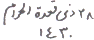 ٢٨ ذى قعدة الحرام
١٤٣٠